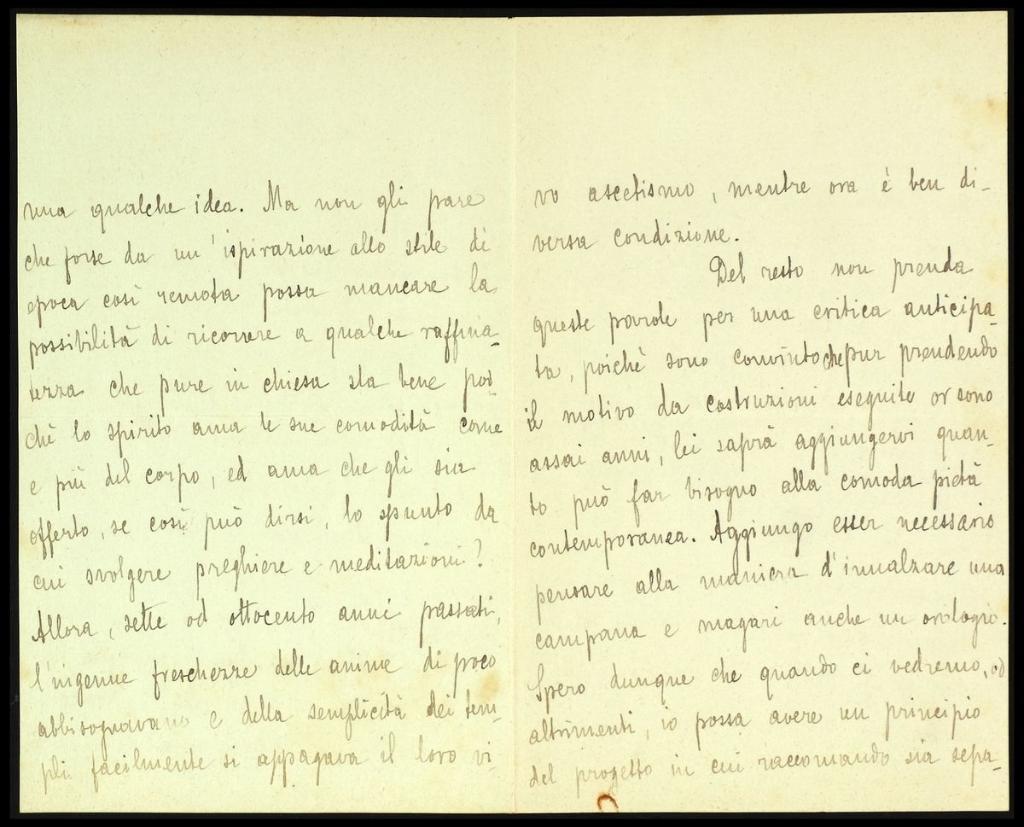 una qualche idea. Ma non gli pare
che forse da un'ispirazione allo stile di
epoca così remota possa mancare la
possibilità di ricorrere a qualche raffina-
tezza che pure in chiesa sta bene poi
chè lo spirito ama le sue comodità come
e più del corpo, ed ama che gli sia
offerto, se così può dirsi, lo spunto da
cui svolgere preghiere e meditazioni?
Allora, sette od ottocento anni passati,
l'ingenue freschezze delle anime di poco
abbisognavano e della semplicità dei tem-
pli facilmente si appagava il loro vi-
vo ascetismo, mentre ora è ben di-
versa condizione.
Del resto non prenda
queste parole per una critica anticipa-
ta, poichè sono convinto che pur prendendo
il motivo da costruzioni eseguite or sono
assai anni, lei saprà aggiungervi quan-
to può far bisogno alla comoda pietà
contemporanea. Aggiungo esser necessario
pensare alla maniera d'innalzare una
campana e magari anche un orologio.
Spero dunque che quando ci vedremo, od
altrimenti, io possa avere un principio
del progetto in cui raccomando sia sepa-